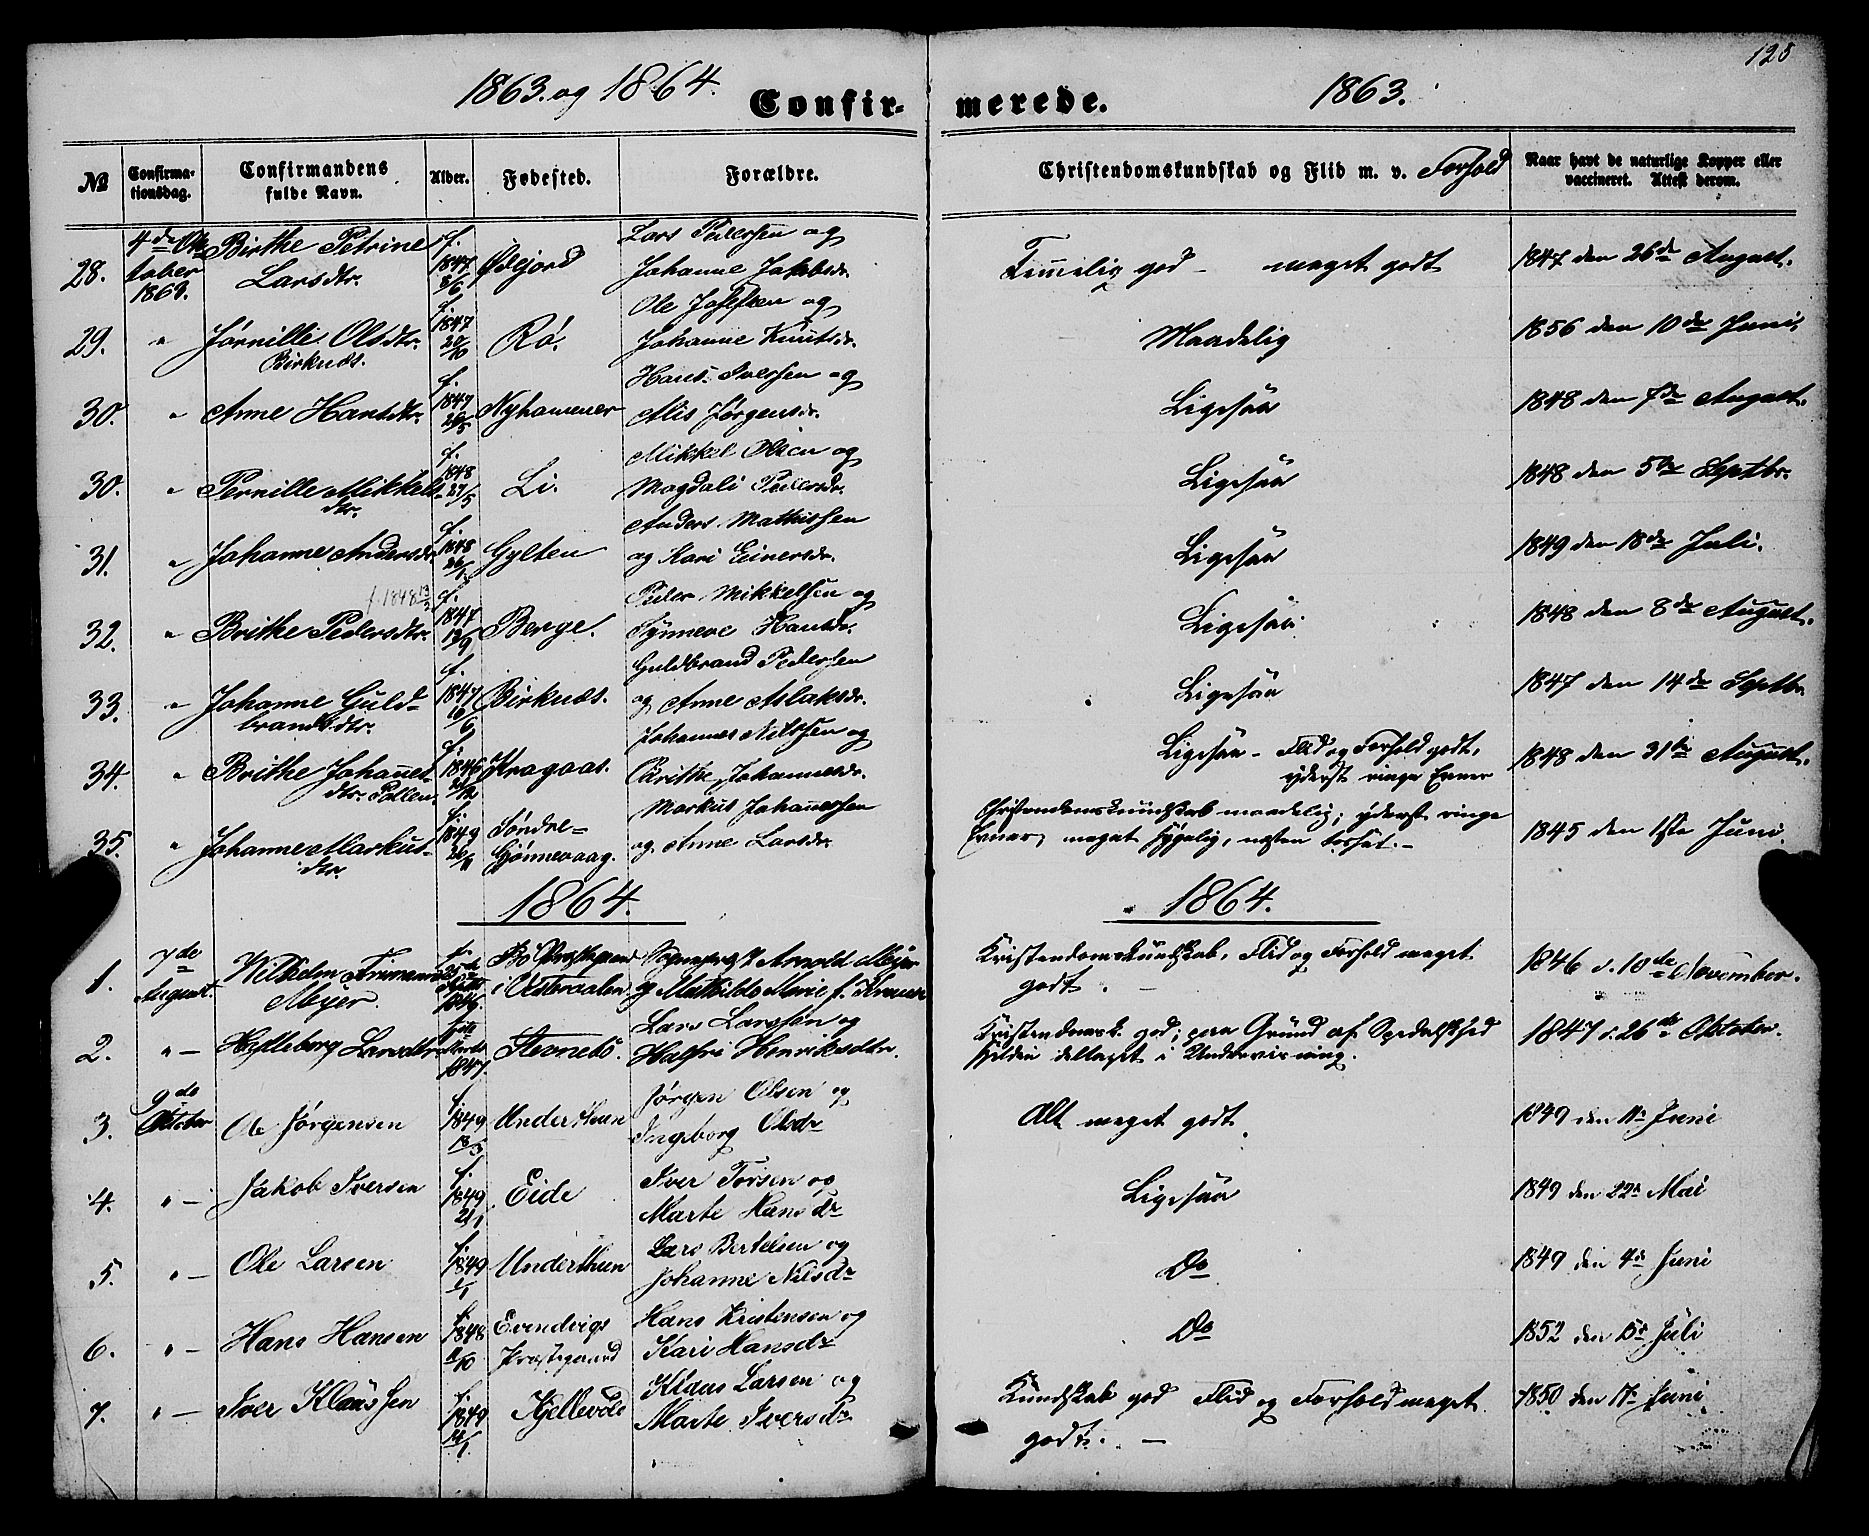 128
1863. og 1864.
Confir-
merede.
1863.
№
Confirma-
tionsdag.
Confirmandens
fulde Navn.
Alder.
Fødested.
Forældre.
Christendomskundskab og Flid m. v. Forhold
Naar havt de naturlige Kopper eller
vaccineret. Attest derom.
28.
4de Ok
tober
1863.
Birthe Petrine
Larsdtr.
f.
1847
Ødejord
Lars Pedersen og
Johanne Jakobsdr.
god - meget godt
1847 den 26de August.
29.
"
Jørnille Olsdtr.
Birknæs.
f.
1847
20/10
Rø.
Ole Josefsen og
Johanne Knutsdr.
Maadelig
1856 den 10de Juni,
30.
"
Anne Hansdtr.
f.
1847
Nyhamener
Hans Iversen og
Alis Jørgensdr.
Ligesaa
1848 den 7de August.
30.
"
Pernille Mikkels
dtr.
f.
1848
27/5
Li.
Mikkel Olsen og
Magdali Pedersdr.
Ligesaa
1848 den 5te Septbr.
31.
"
Johanne Andersdr.
f.
1848
26/1
Gylten
Anders Mathissen
og Kari Einersdr.
Ligesaa
1849 den 18de Juli.
f. 1848 13/3
32.
"
Brithe Pedersdtr.
f.
1847
12/9
Berge.
Peder Mikkelsen og
Synneve Hansdr.
Ligesaa
1848 den 8de August.
33.
"
Johanne Guld-
brandsdtr.
f.
1847
10/6
Birknæs.
Guldbrand Pedersen
og Anne Aslaksdr.
Ligesaa
1847 den 14de Septbr.
34.
"
Brithe Johannes-
dtr. Pollen.
f.
1846
Kragaas.
Johannes Nilssen og
Brithe Johannesdr.
Ligesaa - Flid og Forhold godt,
yderst ringe Evner
1848 den 31te August.
35.
"
Johanne Markus-
dtr.
f.
1849
Søndre-
Gjønnevaag.
Markus Johannessen
og Anne Larsdr.
Christendomskundskab maadelig; yderst ringe
Evner, meget sygelig, næsten
1845 den 1ste Juni.
1864.
1864.
1.
7de
August.
Wilhelm Frimann
Mejer.
1846.
Bö Præstegaard
i Vesteraalen
Sognepræst Arnold Mejer
og Mathilde Marie f.
Kristendomskundskab, Flid og Forhold meget
godt.
1846 d. 10de November.
2.
" -
Hylleborg Larsdtr
1847.
Stenebö.
Lars Larssen og
Halfri Henriksdtr.
Kristendomsk. god; paa Grund af Spedalskhed
sjelden deltaget i Underviisning.
1847 d. 26de Oktober.
3.
9de
Oktober
Ole Jørgensen
f.
1849
18/3
Underthun
Jørgen Olsen og
Ingeborg Olsdr
Alt meget godt
1849 den 11te Juni
4.
" -
Jakob Iversen
f.
1849
21/1
Eide
Iver Torsen og
Marte Hansdr
Ligesaa
1849 den 22de Mai
5.
" -
Ole Larsen
f.
1849
1/1
Underthun
Lars Bertelsen og
Johanne Nilsdr
Do
1849 den 4de Juni
6.
" -
Hans Hansen
f.
1848
Evindvigs
Præstegaard
Hans Kristensen og
Kari Hansdr
Do
1852 den 15de Juli
7.
" -
Iver Klaussen
f.
1849
14/1
Kjellevold
Klaus Larsen og
Marte Iversdr
Kundskab god Flid og Forhold meget
godt. -
1850 den 17de Juni